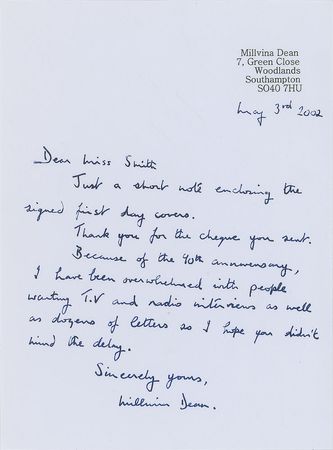 Millvina Dean
7, Green Close
Woodlands
Southampton
SO40 7HU
May 3rd 2002
Dear Miss Smith
Just a short note enclosing the
signed first day covers.
Thank you for the cheque you sent.
Because of the 90th anniversary,
I have been overwhelmed with people
wanting T.V and radio interviews as well
as dozens of letters so I hope you didn't
mind the delay.
Sincerely yours,
Millvina Dean.